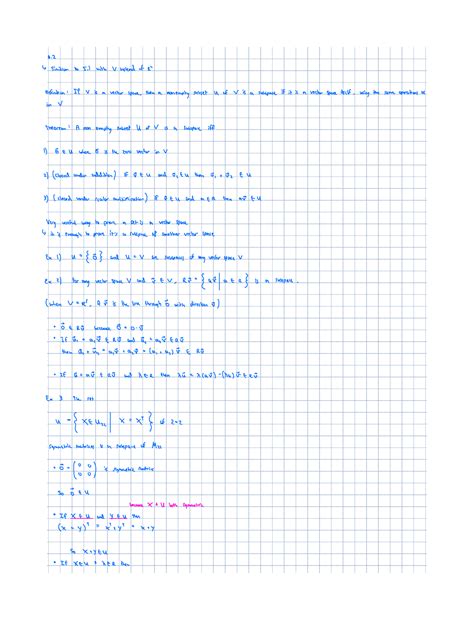 6.2
↳ Similar to 5.1 with V instead of ℝⁿ
Definition: If V is a vector space, then a nonempty subset U of V is a subspace if it is a vector space itself, using the same operations as
in V
Theorem: A non empty subset U of V is a subspace iff
1) 0⃗ ∈ U where 0⃗ is the zero vector in V
2) (closed under addition) if u⃗₁ ∈ U and u⃗₂ ∈ U then u⃗₁ + u⃗₂ ∈ U
3) (closed under scalar multiplication) if u⃗ ∈ U and a ∈ ℝ then au⃗ ∈ U
Very useful way to prove a set is a vector space
↳ it is enough to prove it's a subspace of another vector space
Ex 1) U = { 0⃗ } and U = V are subspaces of any vector space V
Ex 2) For any vector space V and v⃗ ∈ V, ℝv⃗ = { av⃗ | a ∈ ℝ } is a subspace.
(when V = ℝⁿ, ℝv⃗ is the line through 0⃗ with direction v⃗)
• 0⃗ ∈ ℝv⃗ because 0⃗ = 0·v⃗
• If u⃗₁ = a₁v⃗ ∈ ℝv⃗ and u⃗₂ = a₂v⃗ ∈ ℝv⃗
then u⃗₁ + u⃗₂ = a₁v⃗ + a₂v⃗ = (a₁ + a₂) v⃗ ∈ ℝv⃗
• If u⃗ = av⃗ ∈ ℝv⃗ and λ ∈ ℝ then λu⃗ = λ(av⃗) = (λa)v⃗ ∈ ℝv⃗
Ex 3 The set
U = { X ∈ M₂₂ | X = Xᵀ } of 2×2
symmetric matrices is a subspace of M₂₂
• 0⃗ = (0 0
0 0) is symmetric matrix
So 0⃗ ∈ U
because X & Y both symmetric
• If X ∈ U and Y ∈ U then
(X + Y)ᵀ = Xᵀ + Yᵀ = X + Y
So X + Y ∈ U
• If X ∈ U & λ ∈ ℝ then